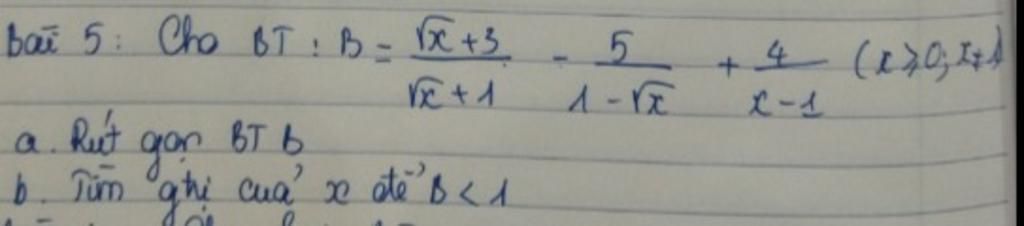 Bài 5: Cho BT: B = (√x + 3)/(√x + 1) - 5/(1 - √x) + 4/(x - 1) (x ≥ 0; x ≠ 1)
a. Rút gọn BT b
b. Tìm gtrị của x để B < 1